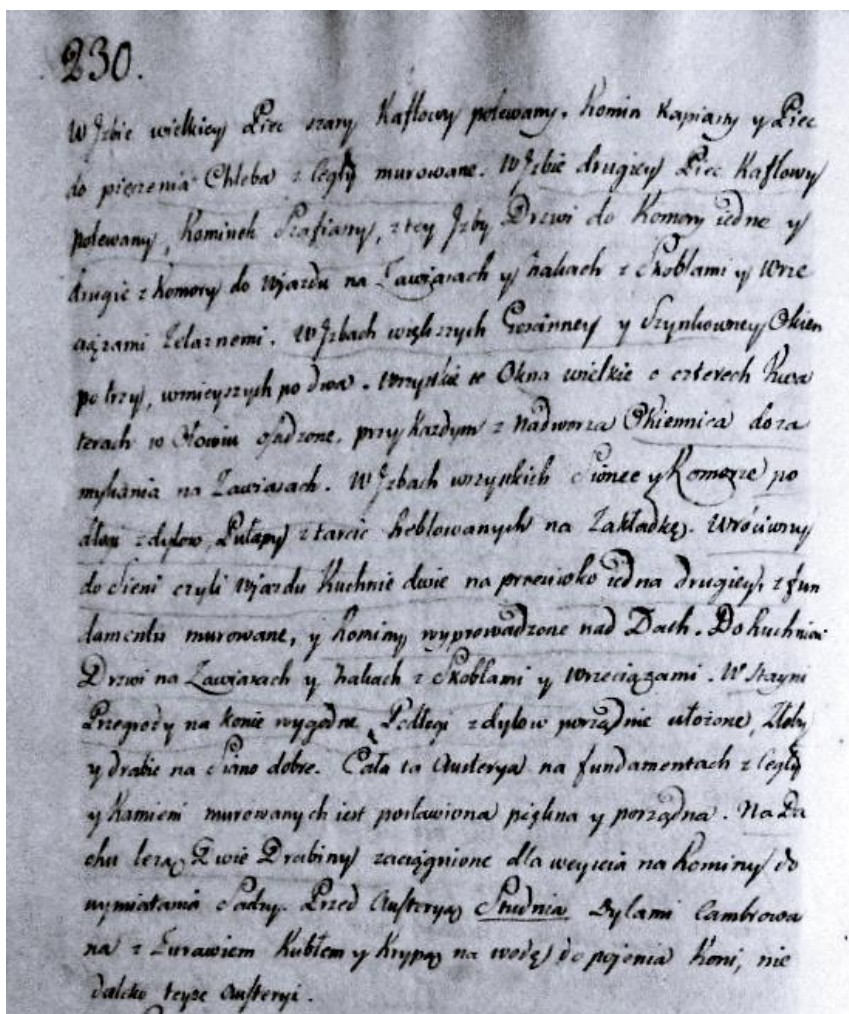 230.
W Jzbie wielkiey Piec szary Kaflowy polewany. Komin Kapiasty y Piec
do pieczenia Chleba z Cegły murowane. W Jzbie drugiey Piec Kaflowy
polewany, Kominek Szafiany, z tey Jzby Drzwi do Komory iedne y
drugie z Komory do Wjazdu na Zawiasach y hakach z Skoblami y Wrze
ciązami Zelaznemi. W Jzbach większych Goscinney y Szynkowney Okien
po trzy, wmnieyszych po dwa. Wszystkie te Okna wielkie o czterech Kwa
terach w Ołowiu osadzone, przy Kazdym z Nadworza Okiennica do za
mykania na Zawiasach. W Jzbach wszystkich Sionce y Komorze po
dłogi z dylow, Pułapy z tarcic heblowanych na Zakładkę. Wrociwszy
do Sieni czyli Wjazdu Kuchnie dwie na przeciwko iedna drugiey, z fun
damentu murowane, y Kominy wyprowadzone nad Dach. Do kuchniow
Drzwi na Zawiasach y hakach z Skoblami y Wrzeciązami. W Stayni
Przegrody na konie wygodne, Podłogi z dylow porządnie ułożone, Złoby
y drabie na Siano dobre. Cała ta Austerya na fundamentach z Cegły
y Kamieni murowanych iest postawiona piękna y porządna. Na Da
chu lezą Dwie Drabiny zaciągnione dla weyscia na Kominy do
wymiatania Sadzy. Przed Austeryą Studnia Dylami Cambrowa
na z Zurawiem Kubłem y Krypą na wodę do pojenia Koni, nie
daleko teyze Austeryi.